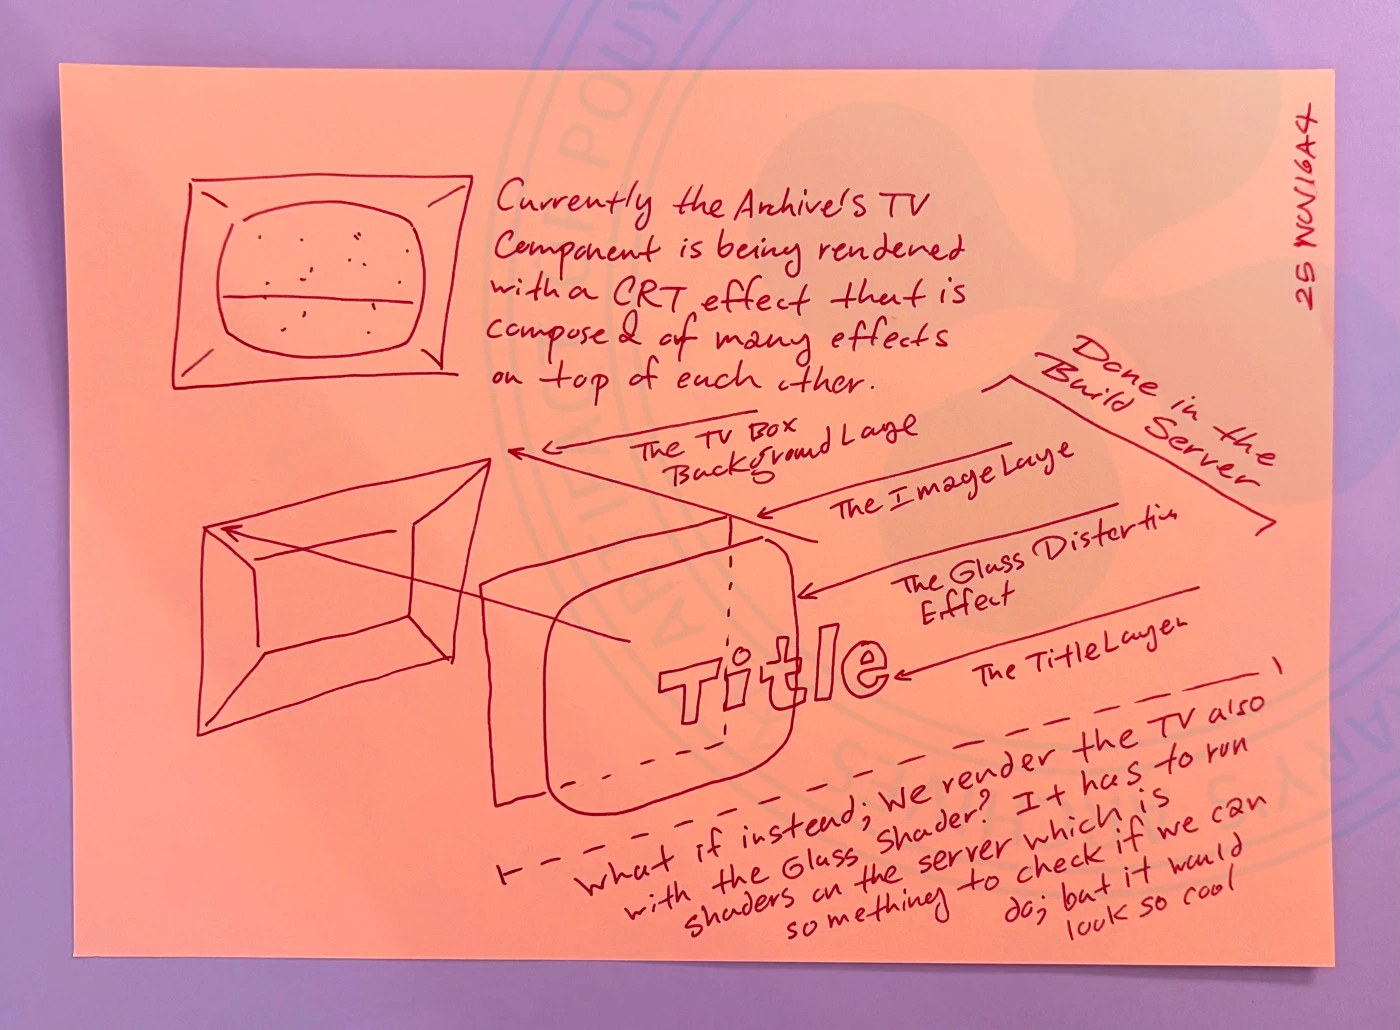 25 NOV/16A4
Currently the Archive's TV
Component is being rendered
with a CRT effect that is
composed of many effects
on top of each other.
Done in the
Build Server
The TV Box
Background Laye
The Image Laye
The Glass Distortion
Effect
The Title Layer
Title
What if instead; We render the TV also
with the Glass Shader? It has to run
shaders on the server which is
something to check if we can
do; but it would
look so cool